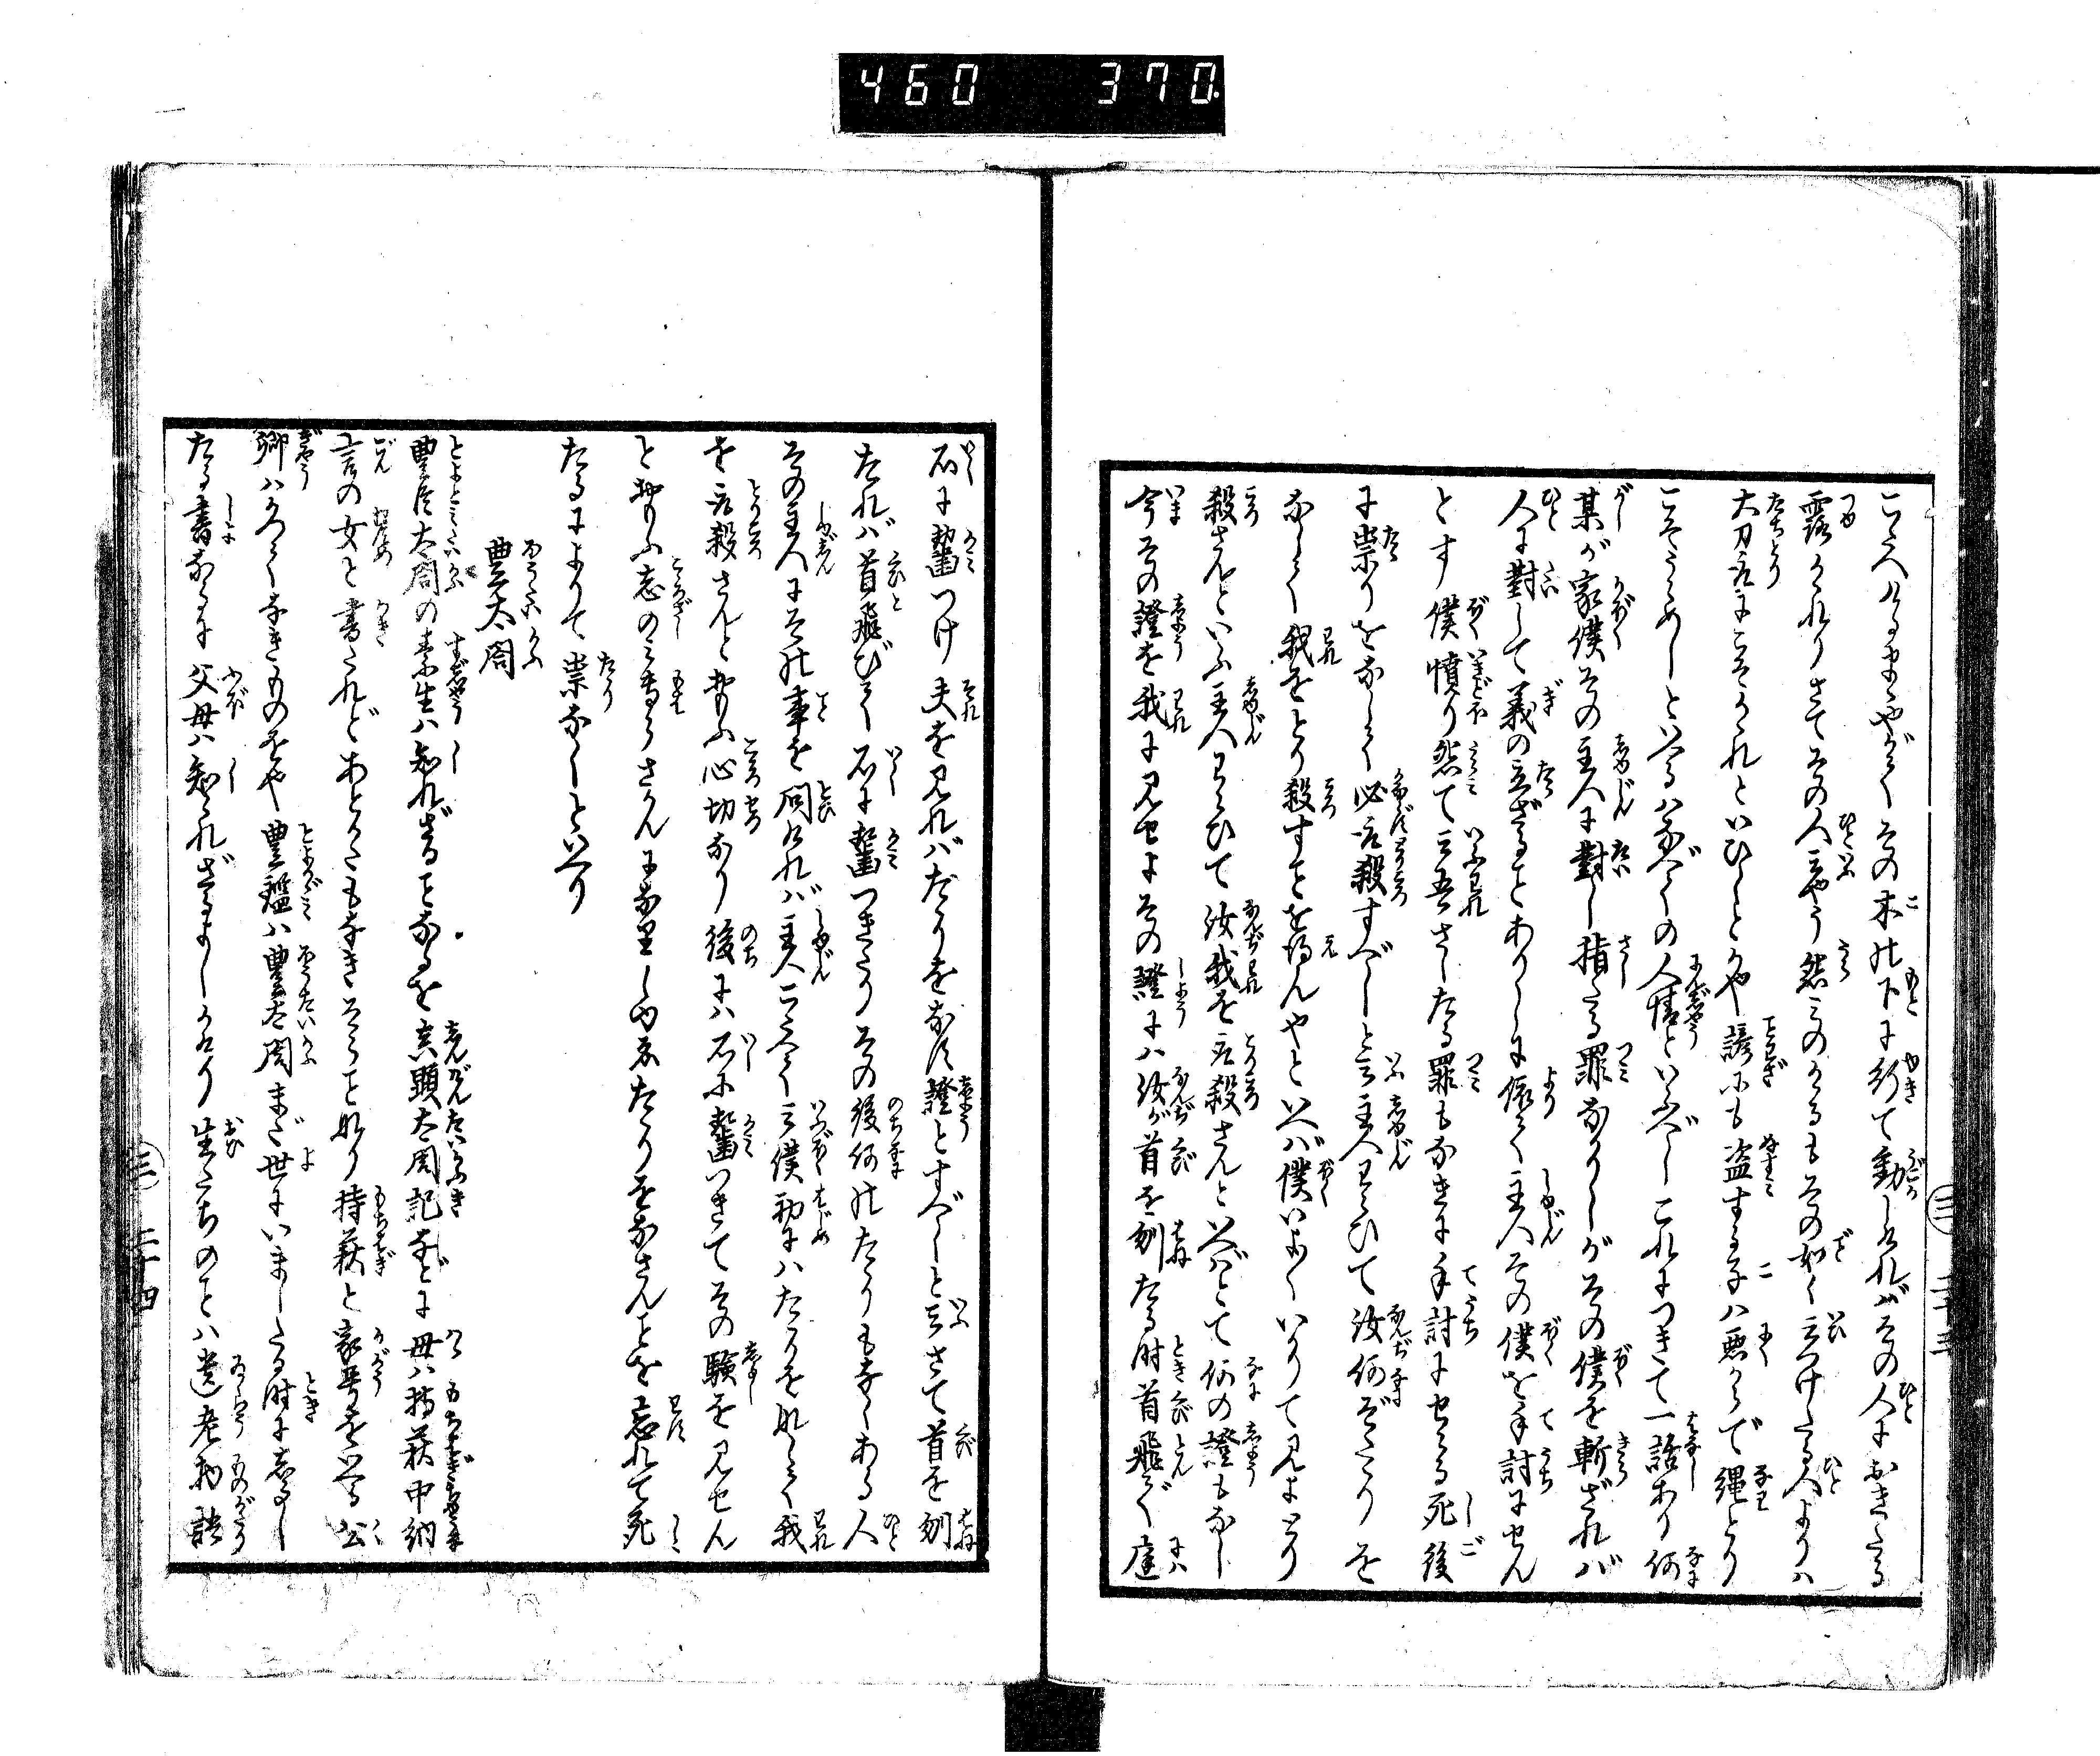 460 370
こたへけるまゝやがてその木の下に行て動しければその人におきたる
露かゝれりさてその人云やう怨みのかゝるもその如く云つけたる人よりハ
大刀取にこそかゝれといひしとかや諺にも盗する子ハ悪からで縄とり
こそうらめしといへるハなべての人情といふべしこれにつきて一話あり何
某が家僕その主人に對し指たる罪なかりしがその僕を斬ざれバ
人に對して義の立ざることありしに依て主人その僕を手討にせん
とす僕憤り怨て云吾さしたる罪もなきに手討にせらる死後
に祟りをなして必取殺すべしと云主人わらひて汝何ぞたゝりを
なして我をとり殺すことを得んやといへバ僕いよ〱いかりて見よとり
殺さんといふ主人わらひて汝我を取殺さんといへばとて何の證もなし
今その證を我に見せよその證にハ汝が首を刎たる時首飛で庭
石に齧つけ夫を見れバたゝりをなす證とすべしと云さて首を刎
たれバ首飛びて石に齧つきたりその後何のたゝりもなしある人
その主人にその事を問ければ主人こたへて云僕初にハたゝりをなして我
を取殺さんと思ふ心切なり後にハ石に齧つきてその験を見せん
と思ふ志のミ専らさかんになりしゆゑたゝりをなさんことを忘れて死
たるによりて祟なしといへり
豊太閤
豊臣太閤の素生ハ知れざることなるを真顕太閤記などに母ハ持萩中納
言の女と書たれどあとかたもなきそらことなり持萩と家号をいへる公
卿ハかつてなきものをや豊鑑ハ豊太閤まだ世にいましたる時にしるし
たる書なるに父母ハ知られざるよしかけり生たちのことハ遺老物語
三 二十三
三 二十四